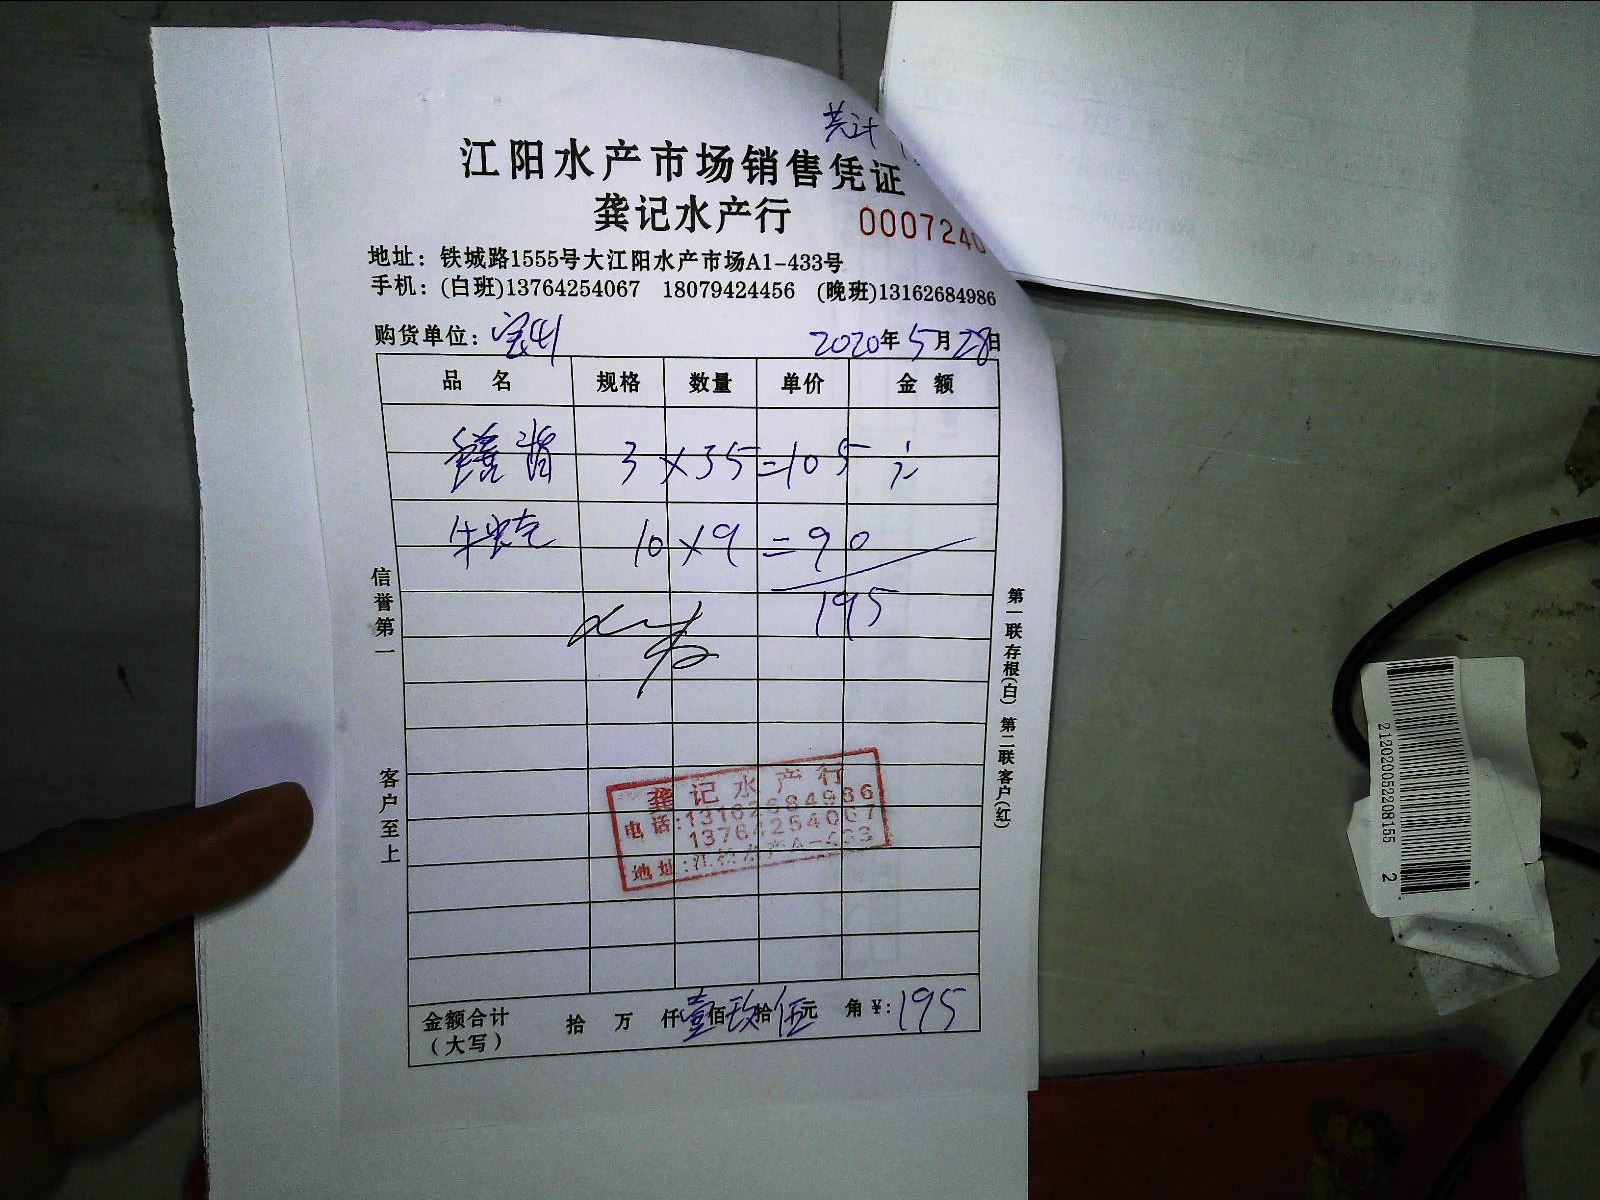 共计
江阳水产市场销售凭证
龚记水产行
0007240
地址：铁城路1555号大江阳水产市场A1-433号
手机：(白班)13764254067 18079424456 (晚班)13162684986
购货单位：
2020年5月28日
品名 规格 数量 单价 金额
3×35=105
10×9=90
195
信誉第一
客户至上
第一联存根(白) 第二联客户(红)
龚记水产行
电话:13162684986
13764254067
地址:江阳水产A-433
金额合计 拾 万 仟壹佰玖拾伍元 角¥:195
(大写)
2120200522081552